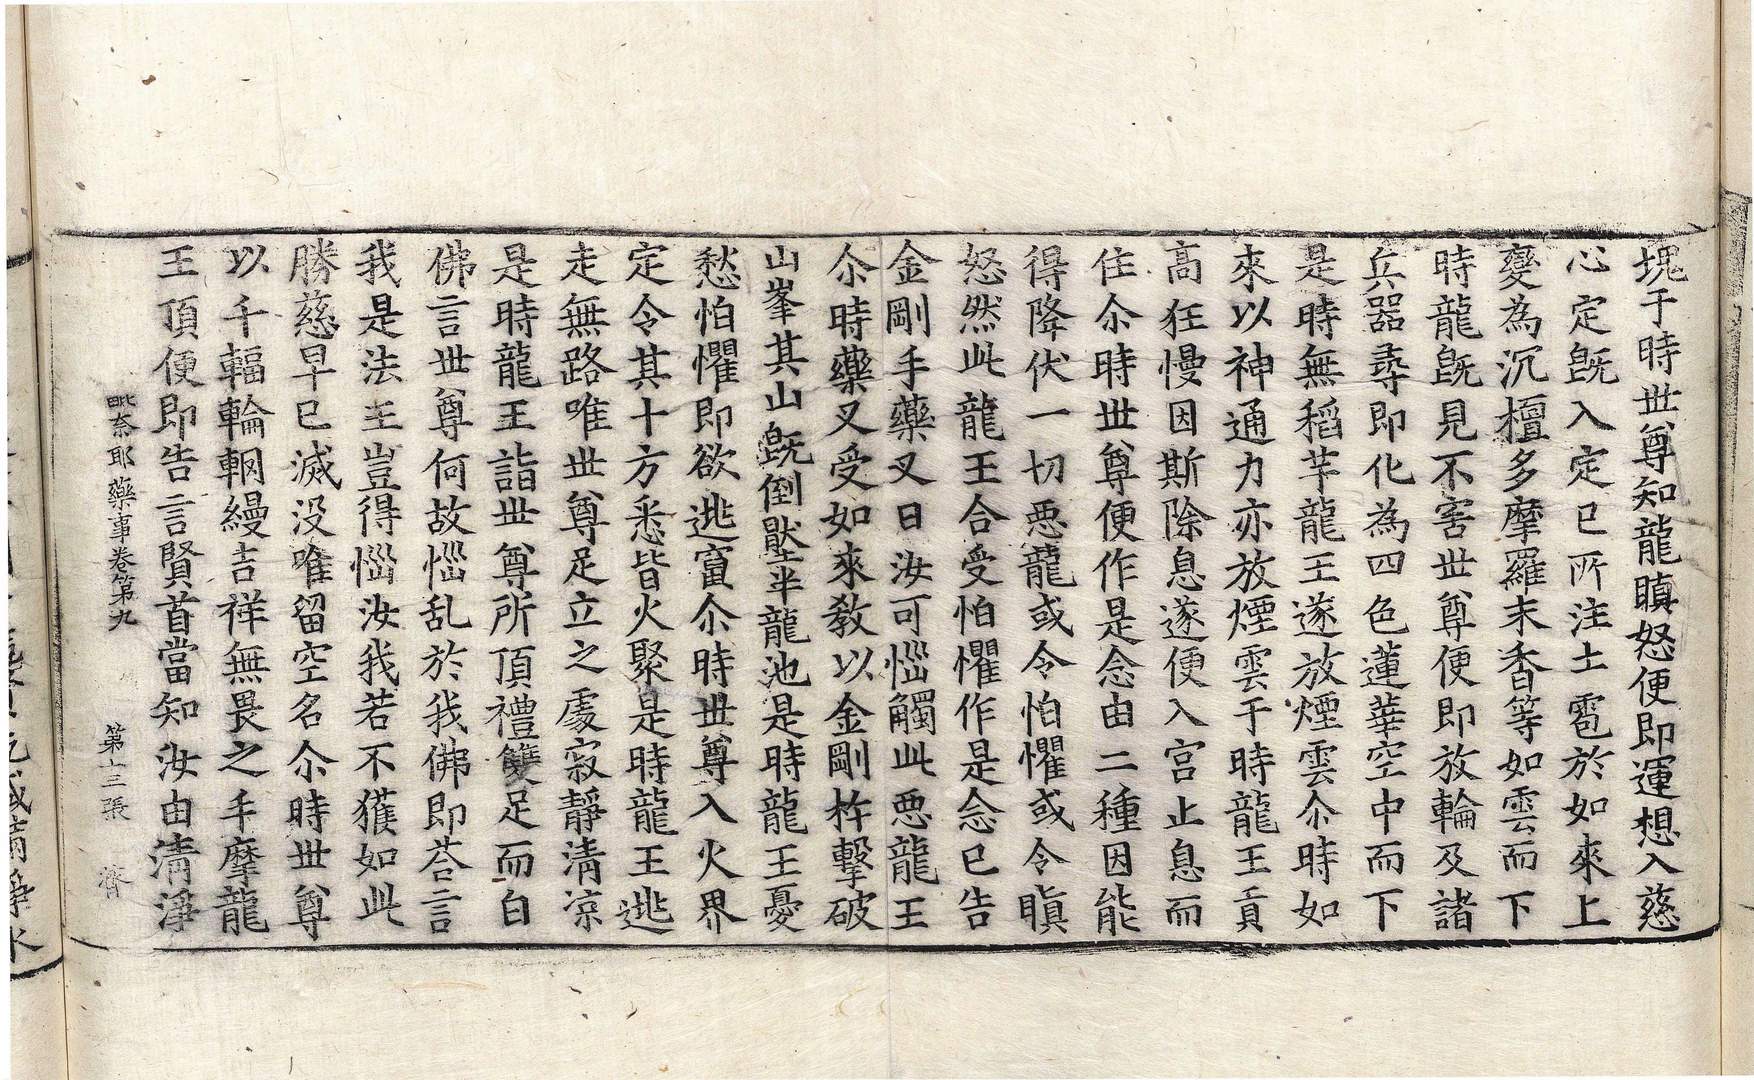 塊于時世尊知龍瞋怒便即運想入慈
心定旣入定已所注土雹於如來上
變為沉檀多摩羅末香等如雲而下
時龍旣見不害世尊便即放輪及諸
兵器尋即化為四色蓮華空中而下
是時無稻芉龍王遂放煙雲尒時如
來以神通力亦放煙雲于時龍王貢
高狂慢因斯除息遂便入宮止息而
住尒時世尊便作是念由二種因能
得降伏一切惡龍或令怕懼或令瞋
怒然此龍王合受怕懼作是念已告
金剛手藥叉曰汝可惱觸此惡龍王
尒時藥叉受如來教以金剛杵擊破
山峯其山旣倒壓半龍池是時龍王憂
愁怕懼即欲逃竄尒時世尊入火界
定令其十方悉皆火聚是時龍王逃
走無路唯世尊足立之處寂靜清涼
是時龍王詣世尊所頂禮雙足而白
佛言世尊何故惱乱於我佛即荅言
我是法王豈得惱汝我若不獲如此
勝慈早已滅没唯留空名尒時世尊
以千輻輪輞縵吉祥無畏之手摩龍
王頂便即告言賢首當知汝由清淨
毗奈耶藥事卷第九 第十三張 濟